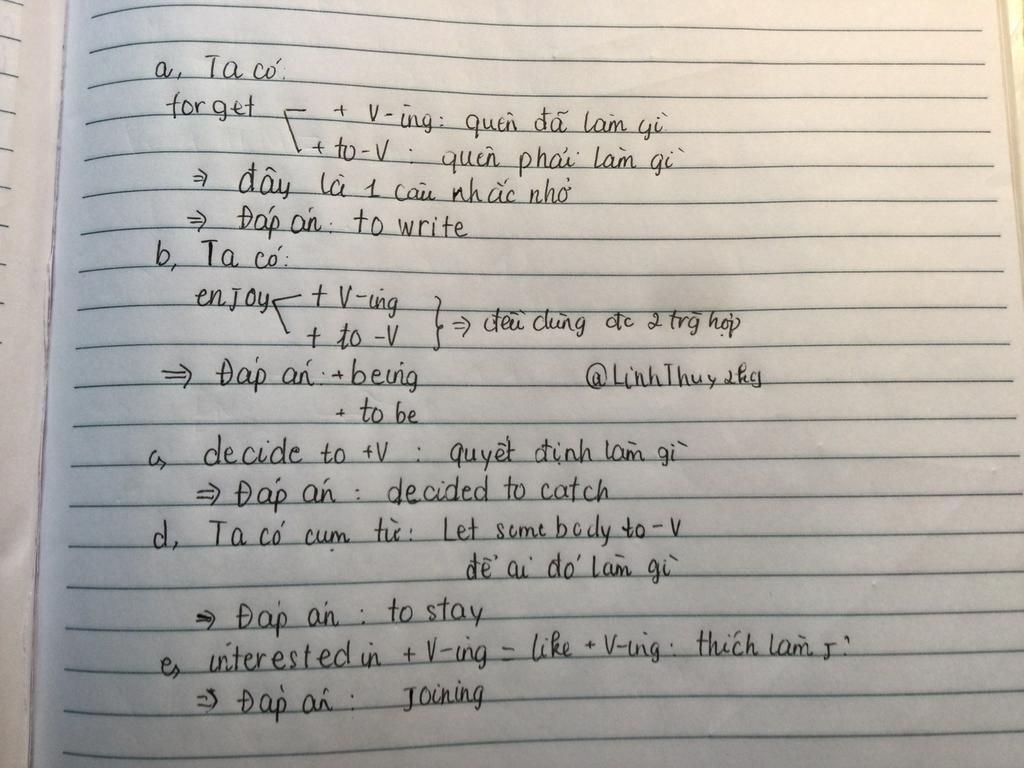 a, Ta có:
forget + V-ing: quên đã làm gì
+ to-V : quên phải làm gì
⇒ đây là 1 câu nhắc nhở
⇒ Đáp án: to write
b, Ta có:
enjoy + V-ing
+ to-V } ⇒ đều dùng đc 2 trg hợp
⇒ Đáp án: + being @LinhThuy2kg
+ to be
c, decide to +V : quyết định làm gì
⇒ Đáp án : decided to catch
d, Ta có cụm từ: Let somebody to-V
để ai đó làm gì
⇒ Đáp án : to stay
e, interested in + V-ing = like + V-ing: thích làm j`
⇒ Đáp án : Joining